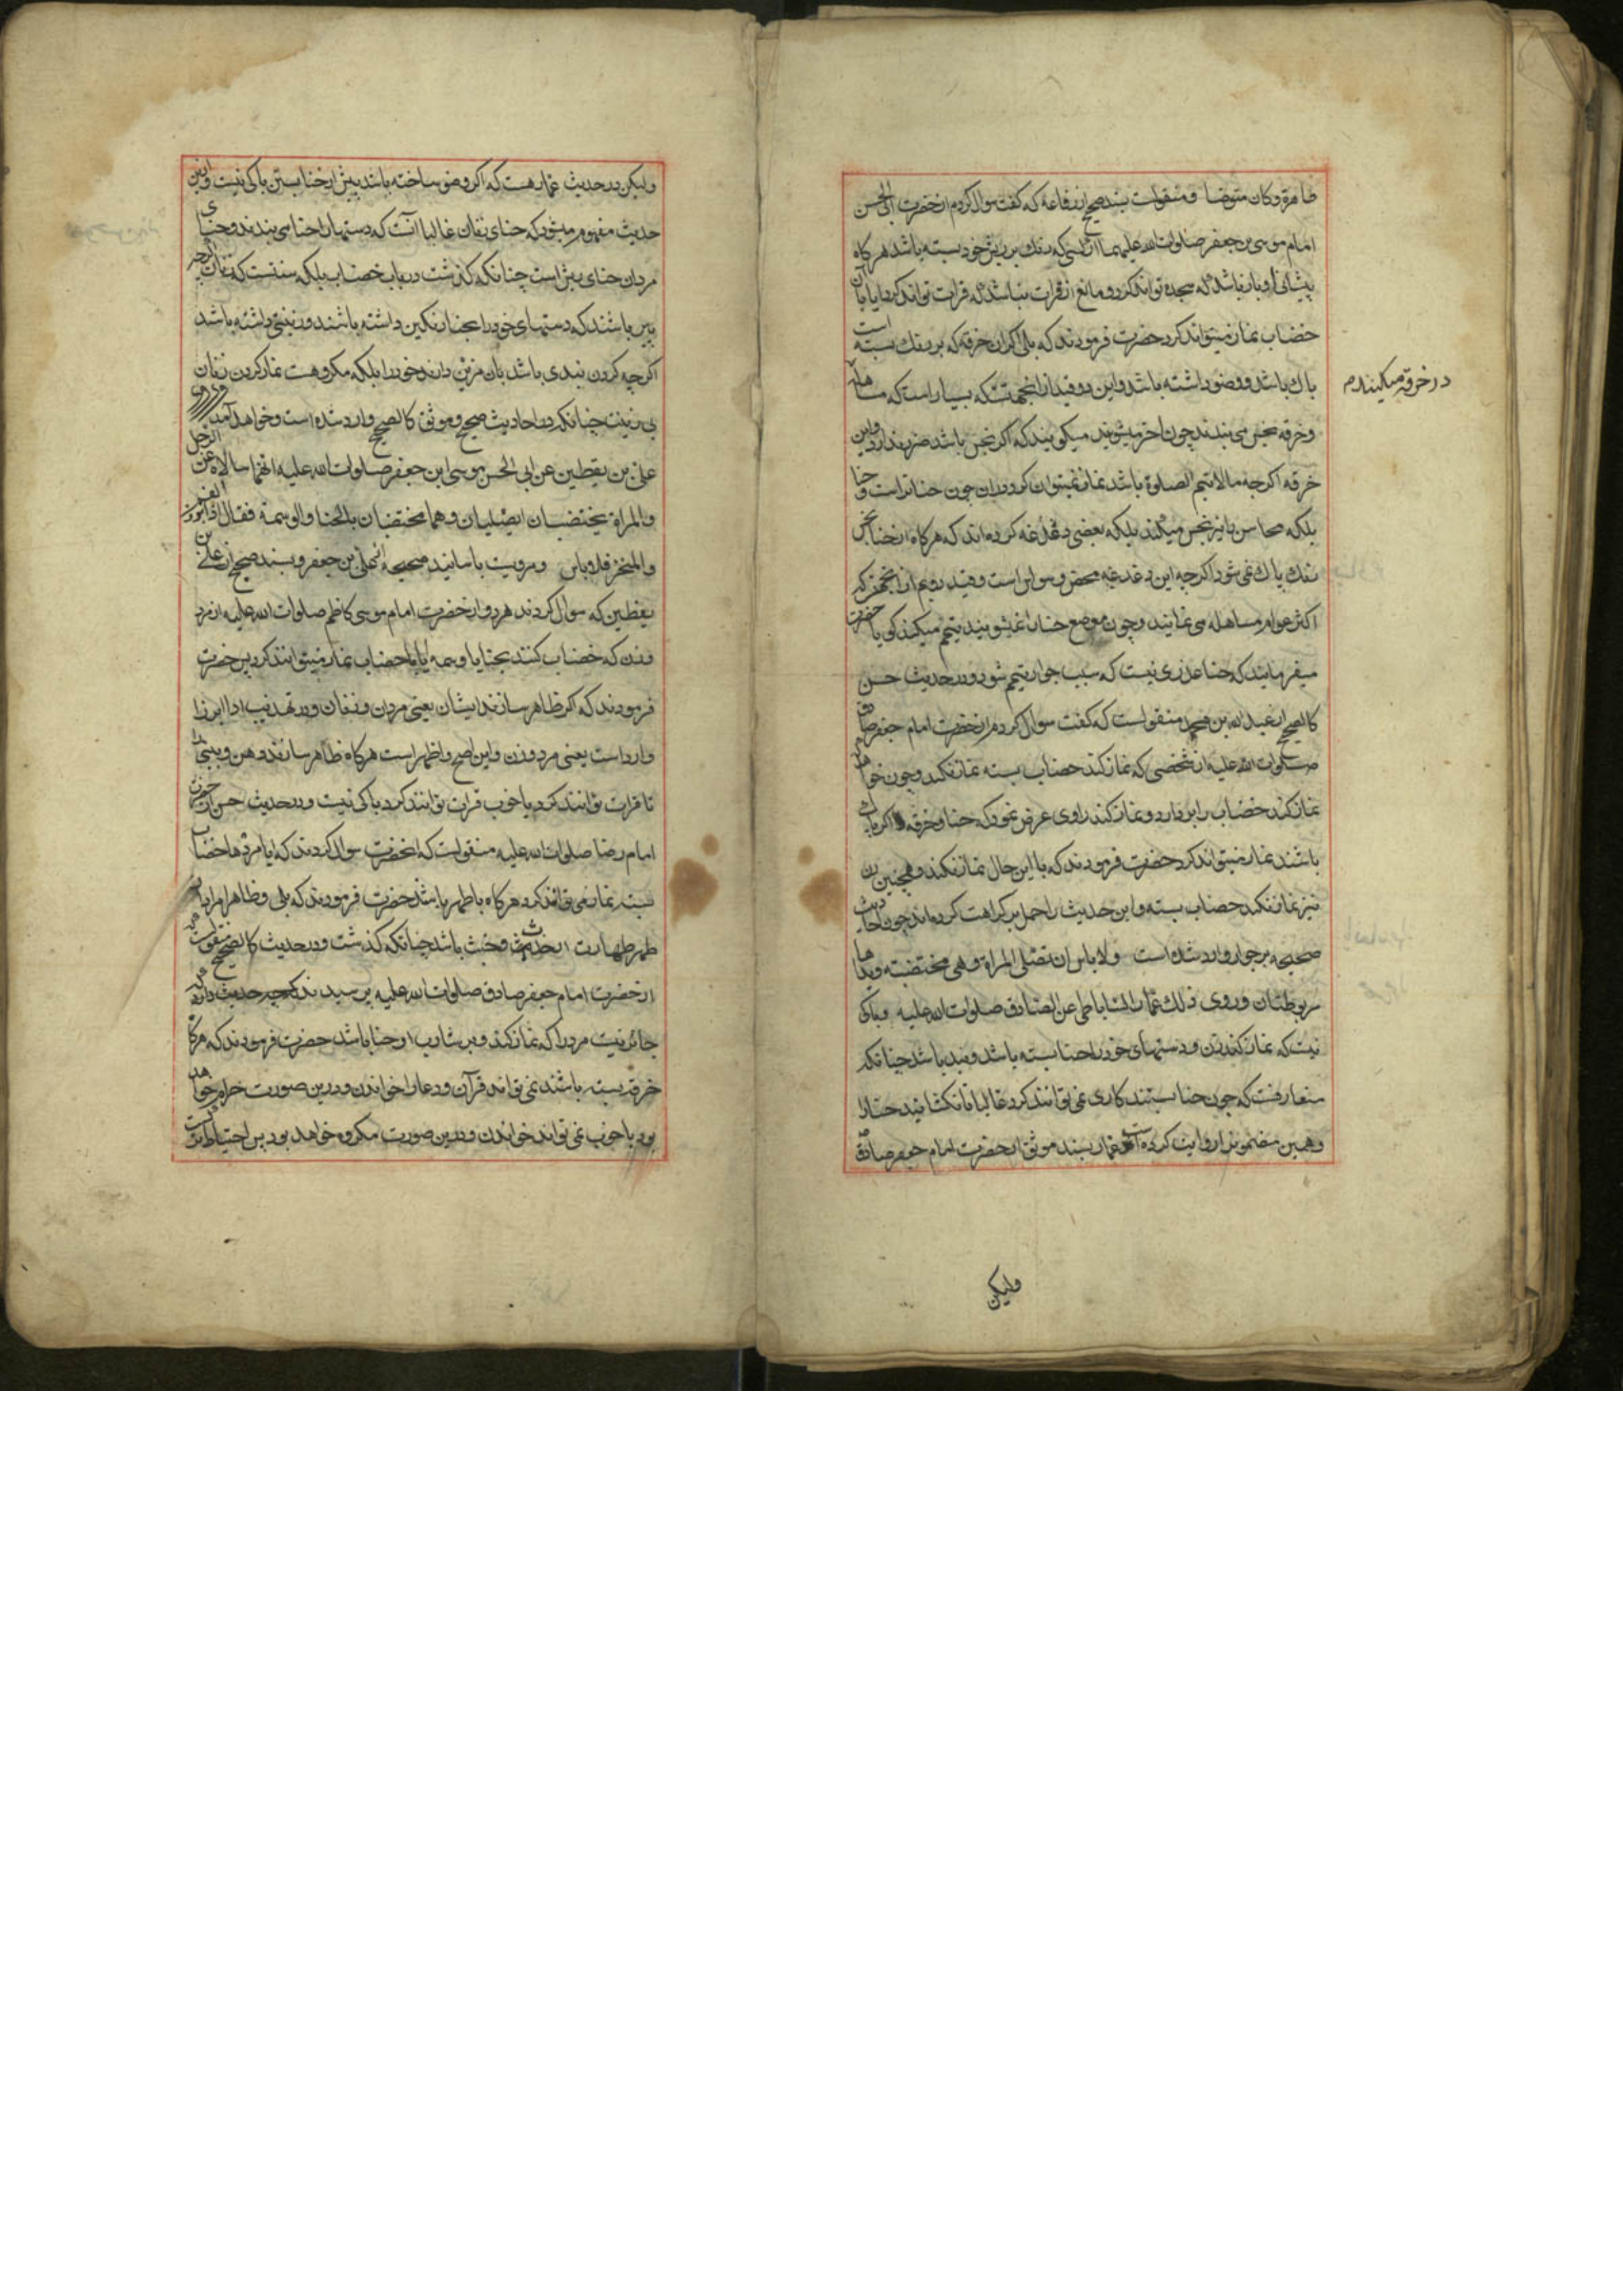 طاهرة وكان متوضا و منقولست بسند صحيح از رفاعه كه كفت سوال كردم از حضرت ابي الحسن
امام موسى بن جعفر صلوات الله عليهما از كسى كه رنك بر ريش خود بسته باشد هركاه
پيشانى او باز باشد كه سجده تواند كرد و مانع از قرات نباشد كه قرات تواند كرد ايا با ان
خضاب نماز ميتواند كرد حضرت فرمودند كه بلى اكر ان خرقه كه بر رنك بسته است
پاك باشد و وضو داشته باشد و اين دو قيد از انجهتست كه بسيار است كه مساهله
در خرقه ميكنند م
و خرقه نجس مى بندند چون اخر ميشويند ميكويند كه اكر نجس باشد ضرر ندارد و اين
خرقه اكرچه مما لا تتم الصلوة باشد نماز نميتوان كرد در ان چون حنا تر است و حنا
بلكه محاسن را نيز نجس ميكند بلكه بعضى دغدغه كرده اند كه هركاه از حنا نجس
رنك پاك نمى شود اكرچه اين دغدغه محض وسواس است و قيد دويم از انجهة كه
اكثر عوام مساهله مى نمايند و چون موضع حنا را نميشويند تيمم ميكنند كويا حضرت
ميفرمايند كه حنا عذرى نيست كه سبب جواز تيمم شود و در حديث حسن
كالصحيح از عبد الله بن محمد منقولست كه كفت سوال كردم از حضرت امام جعفر صادق
صلوات الله عليه از شخصى كه نماز كند خضاب بسته نماز نكند و چون خواهد
نماز كند خضاب را بردارد و نماز كند راوى عرض نمود كه حنا و خرقه اكر پاك
باشند نماز ميتواند كرد حضرت فرمودند كه با اين حال نماز نكند و همچنين زن
نيز نماز نكند خضاب بسته و اين حديث را حمل بر كراهت كرده اند چون احاديث
صحيحه بر جواز وارد شده است ولا باس ان تصلى المراة وهى مختضبة ويداها
مربوطتان وروى ذلك عمار الساباطى عن الصادق صلوات الله عليه و باكى
نيست كه نماز كند زن و دستهاى خود را حنا بسته باشد و بند باشد چنانكه
متعارفست كه چون حنا بستند كارى نمى توانند كرد غالبا تا نكشايند حنا را
و همين مضمون را روايت كرده است عمار بسند موثق از حضرت امام جعفر صادق
وليكن
وليكن در حديث عمار هست كه اكر وضو ساخته باشد پيش از حنا بستن باكى نيست و از اين
حديث مفهوم ميشود كه حناى زنان غالبا انست كه دستها را حنا مى بندند و حناى
مردان حناى ريش است چنانكه كذشت در باب خضاب بلكه سنتست كه زنان اكرچه
پير باشند كه دستهاى خود را بحنا رنكين داشته باشند و زينتى داشته باشند
اكرچه كردن بندى باشد بان مزين دارند خود را بلكه مكروهست نماز كردن زنان
بى زينت چنانكه در احاديث صحيح و موثق كالصحيح وارد شده است و خواهد آمد وروى
على بن يقطين عن ابى الحسن موسى ابن جعفر صلوات الله عليه انهما سالاه عن الرجل
والمراة يختضبان ايصليان وهما مختضبان بالحنا والوسمة فقال اذا ابرزوا الفم
والمنخر فلا باس و مرويست باسانيد صحيحه از على بن جعفر و بسند صحيح از على بن
يقطين كه سوال كردند هر دو از حضرت امام موسى كاظم صلوات الله عليه از مرد
و زن كه خضاب كنند بحنا يا وسمه ايا با خضاب نماز ميتوانند كرد پس حضرت
فرمودند كه اكر ظاهر سازند ايشان يعنى مردن و زنان و در تهذيب اذا ابرزا
وارد است يعنى مرد و زن و اين اصح و اظهر است هركاه ظاهر سازند دهن و بينى را
تا قرات توانند كرد يا خوب قرات توانند كرد باكى نيست و در حديث حسن از حضرت
امام رضا صلوات الله عليه منقولست كه از حضرت سوال كردند كه ايا مرد ها خضاب
بسته نماز مى توانند كرد هركاه باطهر باشد حضرت فرمودند كه بلى و ظاهرا مراد از
طهر طهارت از حدث و خبث باشد چنانكه كذشت و در حديث كالصحيح منقولست كه
از حضرت امام جعفر صادق صلوات الله عليه پرسيدند كه چه حديث دارد كه
جائز نيست مرد را كه نماز كند و بر شارب او حنا باشد حضرت فرمودند كه هركاه
خرقه بسته باشند نمى تواند قرآن و دعا را خواندن و درين صورت حرام خواهد
بود يا خوب نمى تواند خواندن و درين صورت مكروه خواهد بود پس احتياط در